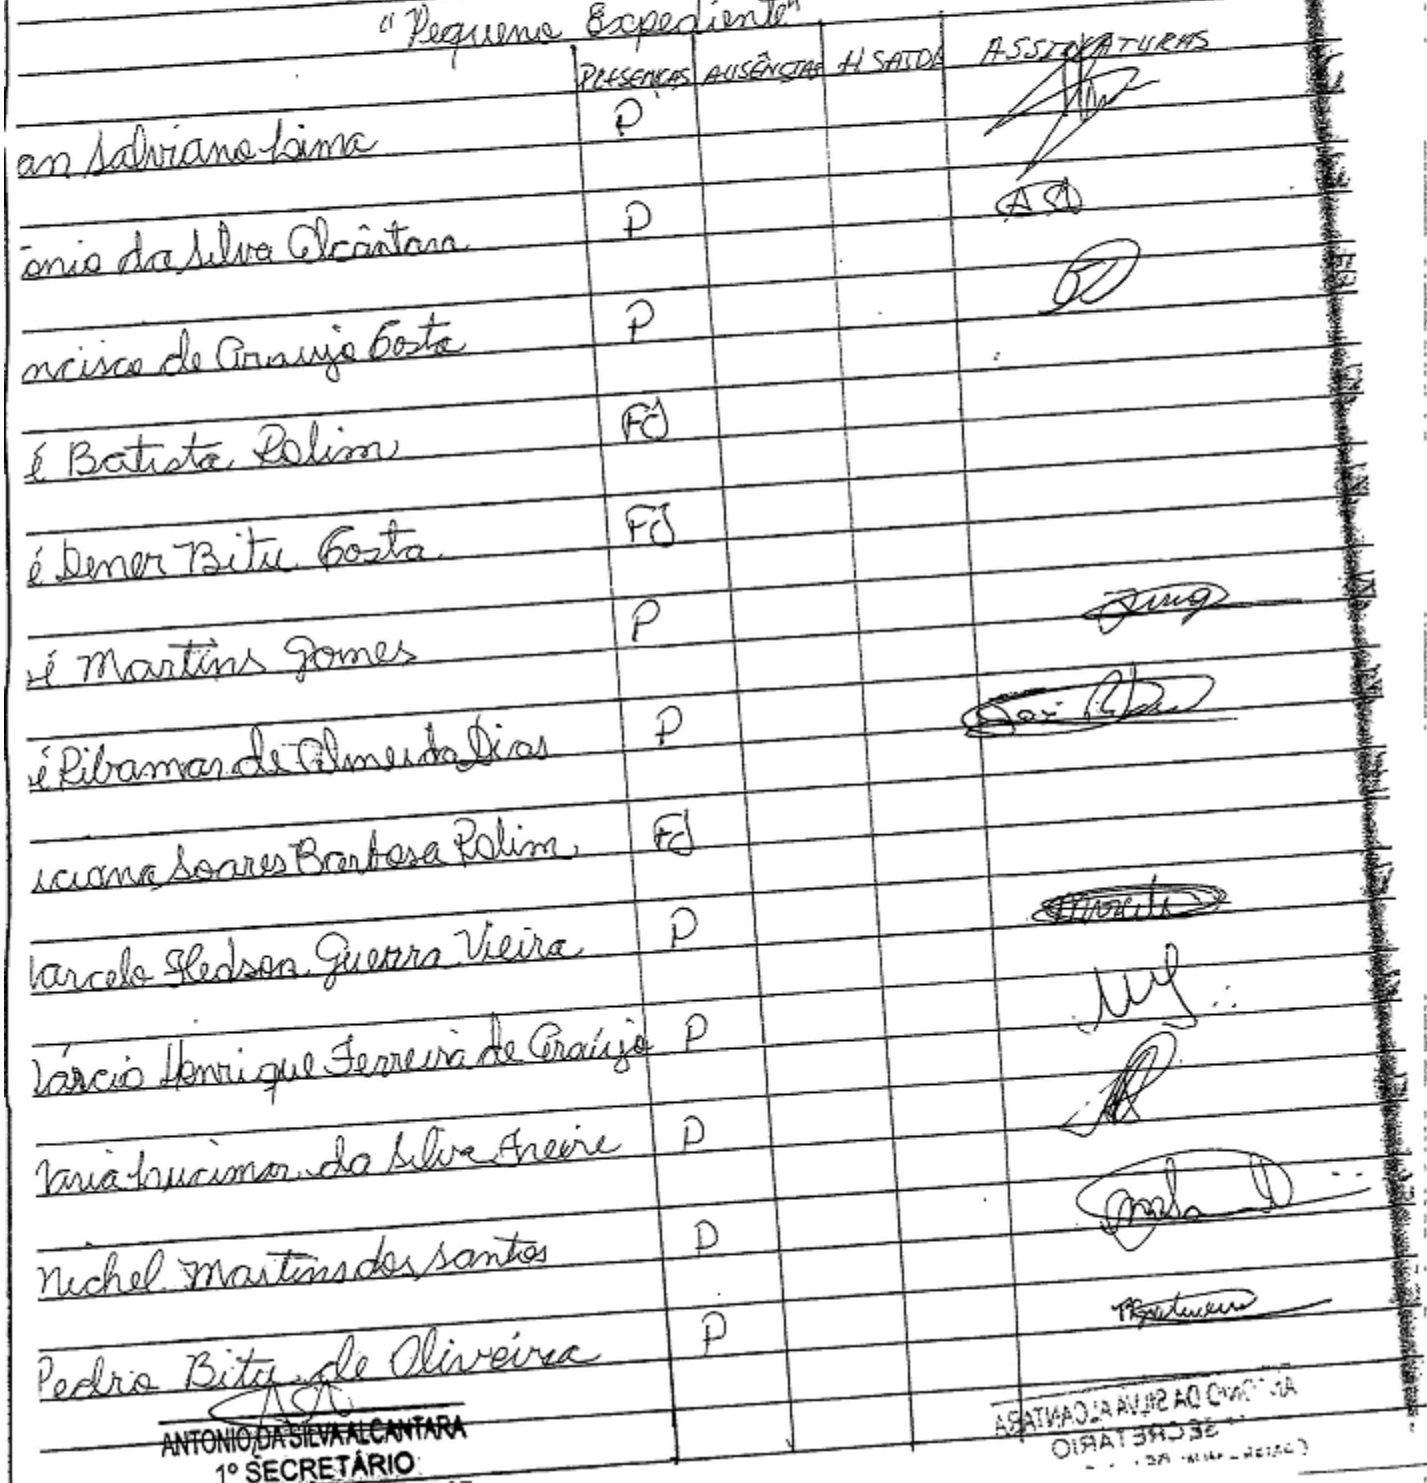 "Pequeno Expediente"
PRESENÇAS AUSÊNCIAS H SAIDA ASSINATURAS
an Salviano Lima P
ônio da Silva Alcântara P
ncisco de Araujo Costa P
é Batista Rolim FJ
é Dener Bitu Costa FJ
é Martins Gomes P
é Ribamar de Almeida Dias P
uciana Soares Barbosa Rolim FJ
arcelo Hedson Guerra Vieira P
árcio Henrique Ferreira de Araújo P
aria Lucimar da Silva Freire P
Michel Martins dos Santos P
Pedro Bitu de Oliveira P
ANTONIO DA SILVA ALCANTARA
1º SECRETÁRIO